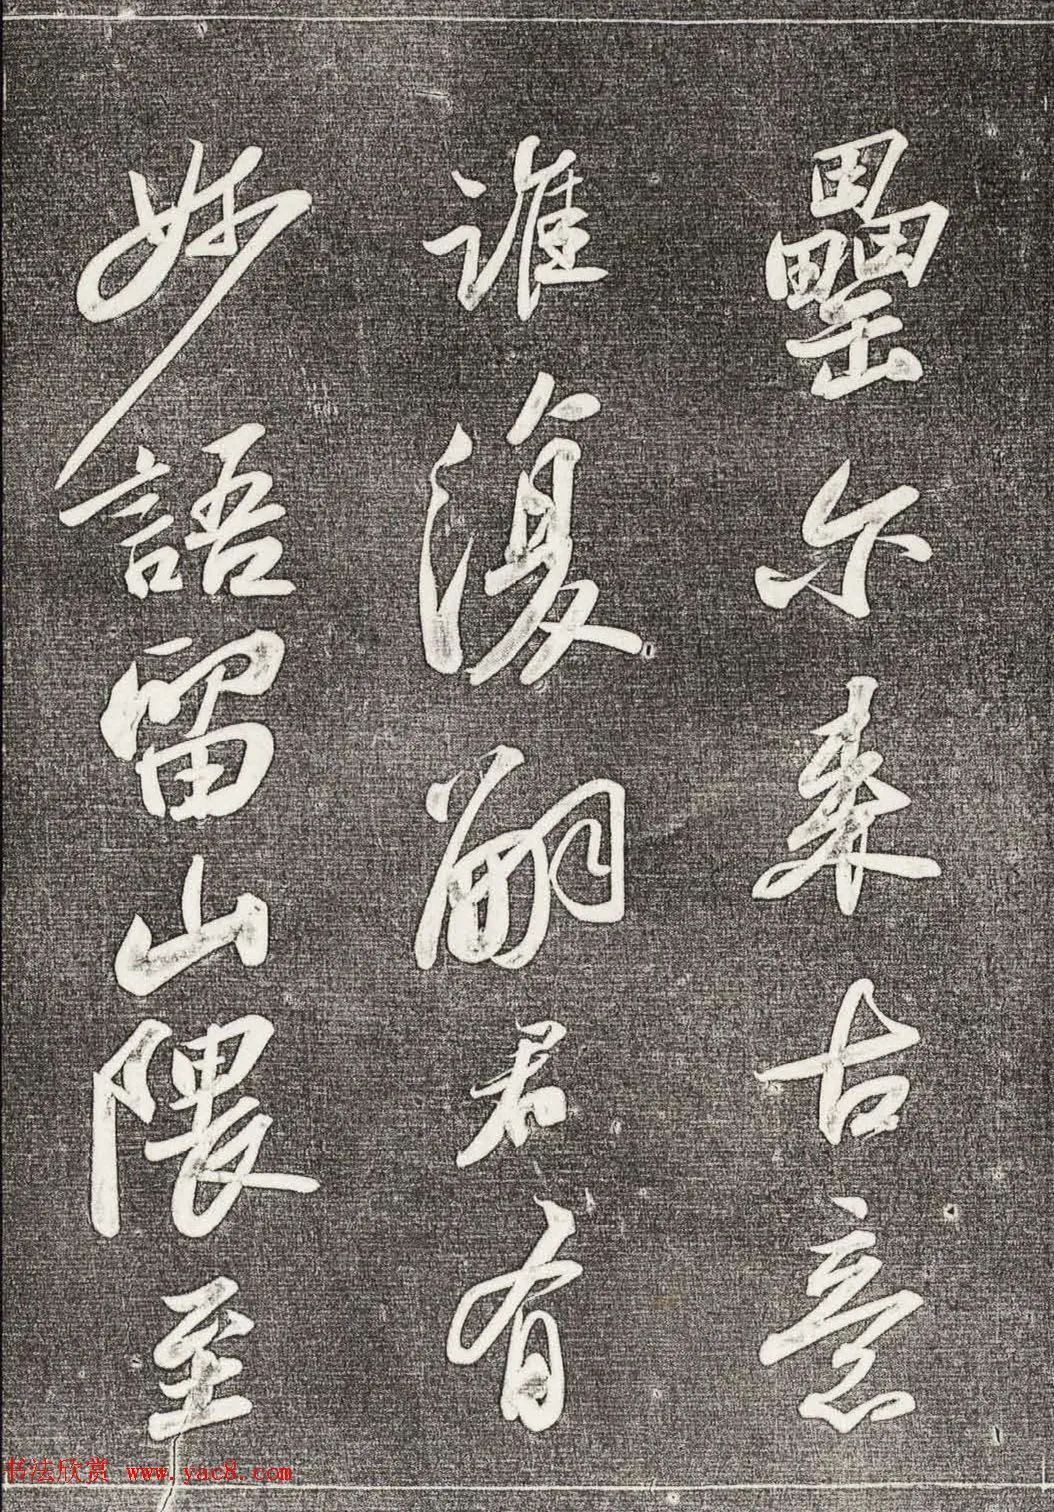 罍尔来古意
谁复嗣君有
妙語留山隈至
书法欣赏 www.yac8.com